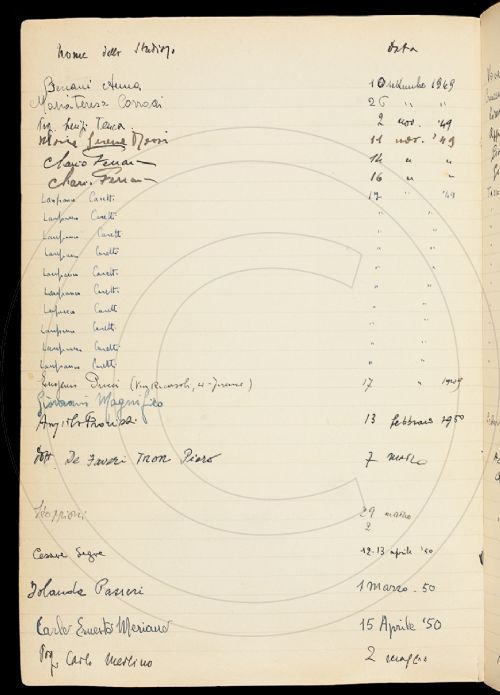 Nome dello Studioso Data
Benani Anna 10 settembre 1949
Maria Teresa Corradi 26 " "
Luigi Tenca 2 nov. '49
11 nov. '49
Mario Ferrari 14 " "
Mario Ferrari 16 " "
Lanfranco Caretti 17 " '49
Lanfranco Caretti " "
Lanfranco Caretti " "
Lanfranco Caretti " "
Lanfranco Caretti " "
Lanfranco Caretti " "
Lanfranco Caretti " "
Lanfranco Caretti " "
Lanfranco Caretti " "
Lanfranco Caretti " "
Eugenio Ducci 17 " 1949
Giovanni Magnifico
Angiolo 13 febbraio 1950
Dott. De Faveri Tron Piero 7 marzo
29 marzo
2
Cesare Segre 12-13 aprile '50
Jolanda Passeri 1 Marzo - 50
Carlo Ernesto Meriano 15 Aprile '50
Carlo Merlino 2 maggio